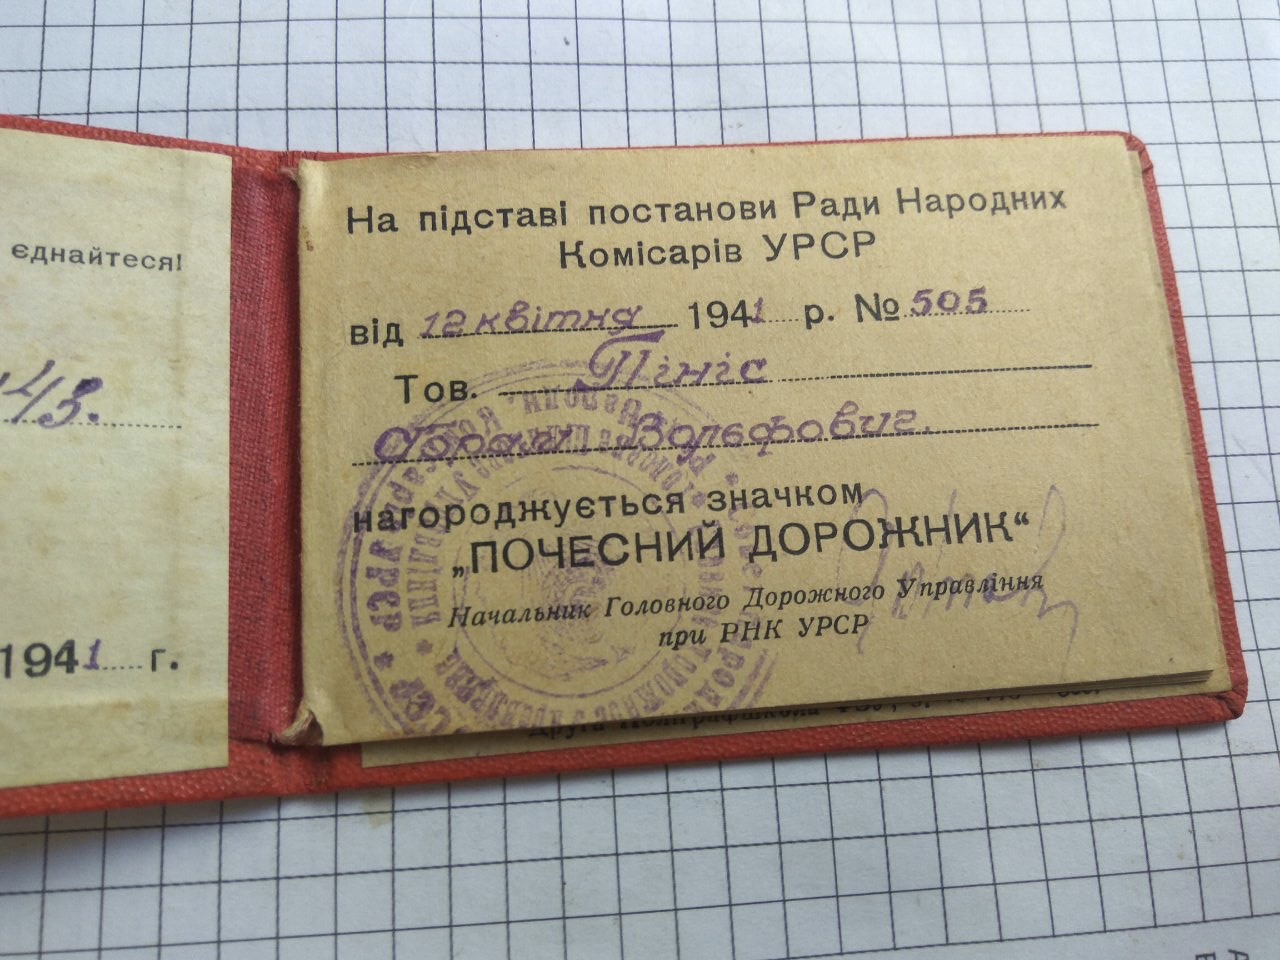 єднайтеся!
43.
1941 г.
На підставі постанови Ради Народних
Комісарів УРСР
від 12 квітня 1941 р. № 505
Тов. Пініс
Вольфович.
нагороджується значком
„ПОЧЕСНИЙ ДОРОЖНИК“
Начальник Головного Дорожного Управління
при РНК УРСР
Друга